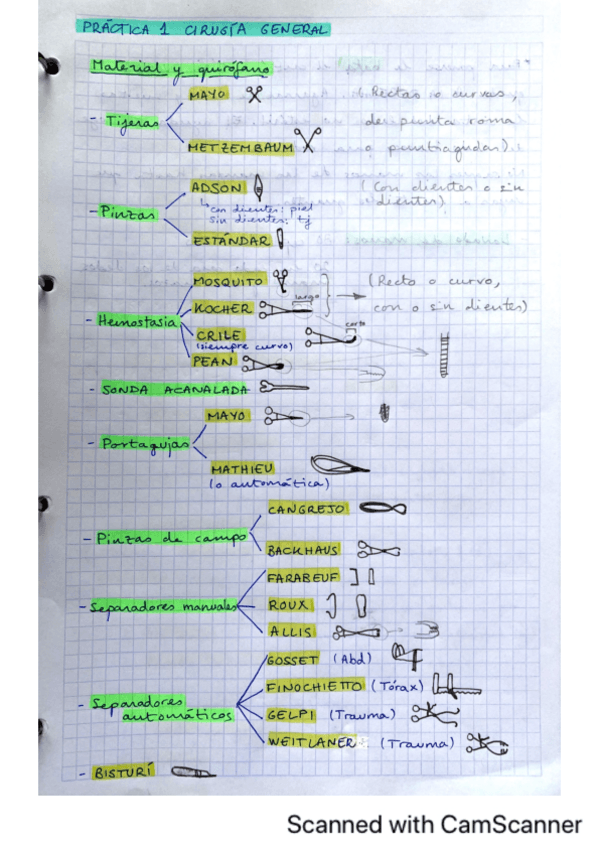 PRÁCTICA 1 CIRUGÍA GENERAL
Material y quirófano
- Tijeras
MAYO
METZEMBAUM
(Rectas o curvas,
de punta roma
o puntiagudas).
- Pinzas
ADSON
con dientes: piel
sin dientes: tj
ESTÁNDAR
(Con dientes o sin
dientes)
- Hemostasia
MOSQUITO
KOCHER
largo
CRILE
(siempre curvo)
corto
PEAN
(Recto o curvo,
con o sin dientes)
- SONDA ACANALADA
- Portagujas
MAYO
MATHIEU
(o automática)
- Pinzas de campo
CANGREJO
BACKHAUS
- Separadores manuales
FARABEUF
ROUX
ALLIS
- Separadores
automáticos
GOSSET (Abd)
FINOCHIETTO (Tórax)
GELPI (Trauma)
WEITLANER (Trauma)
- BISTURÍ
Scanned with CamScanner